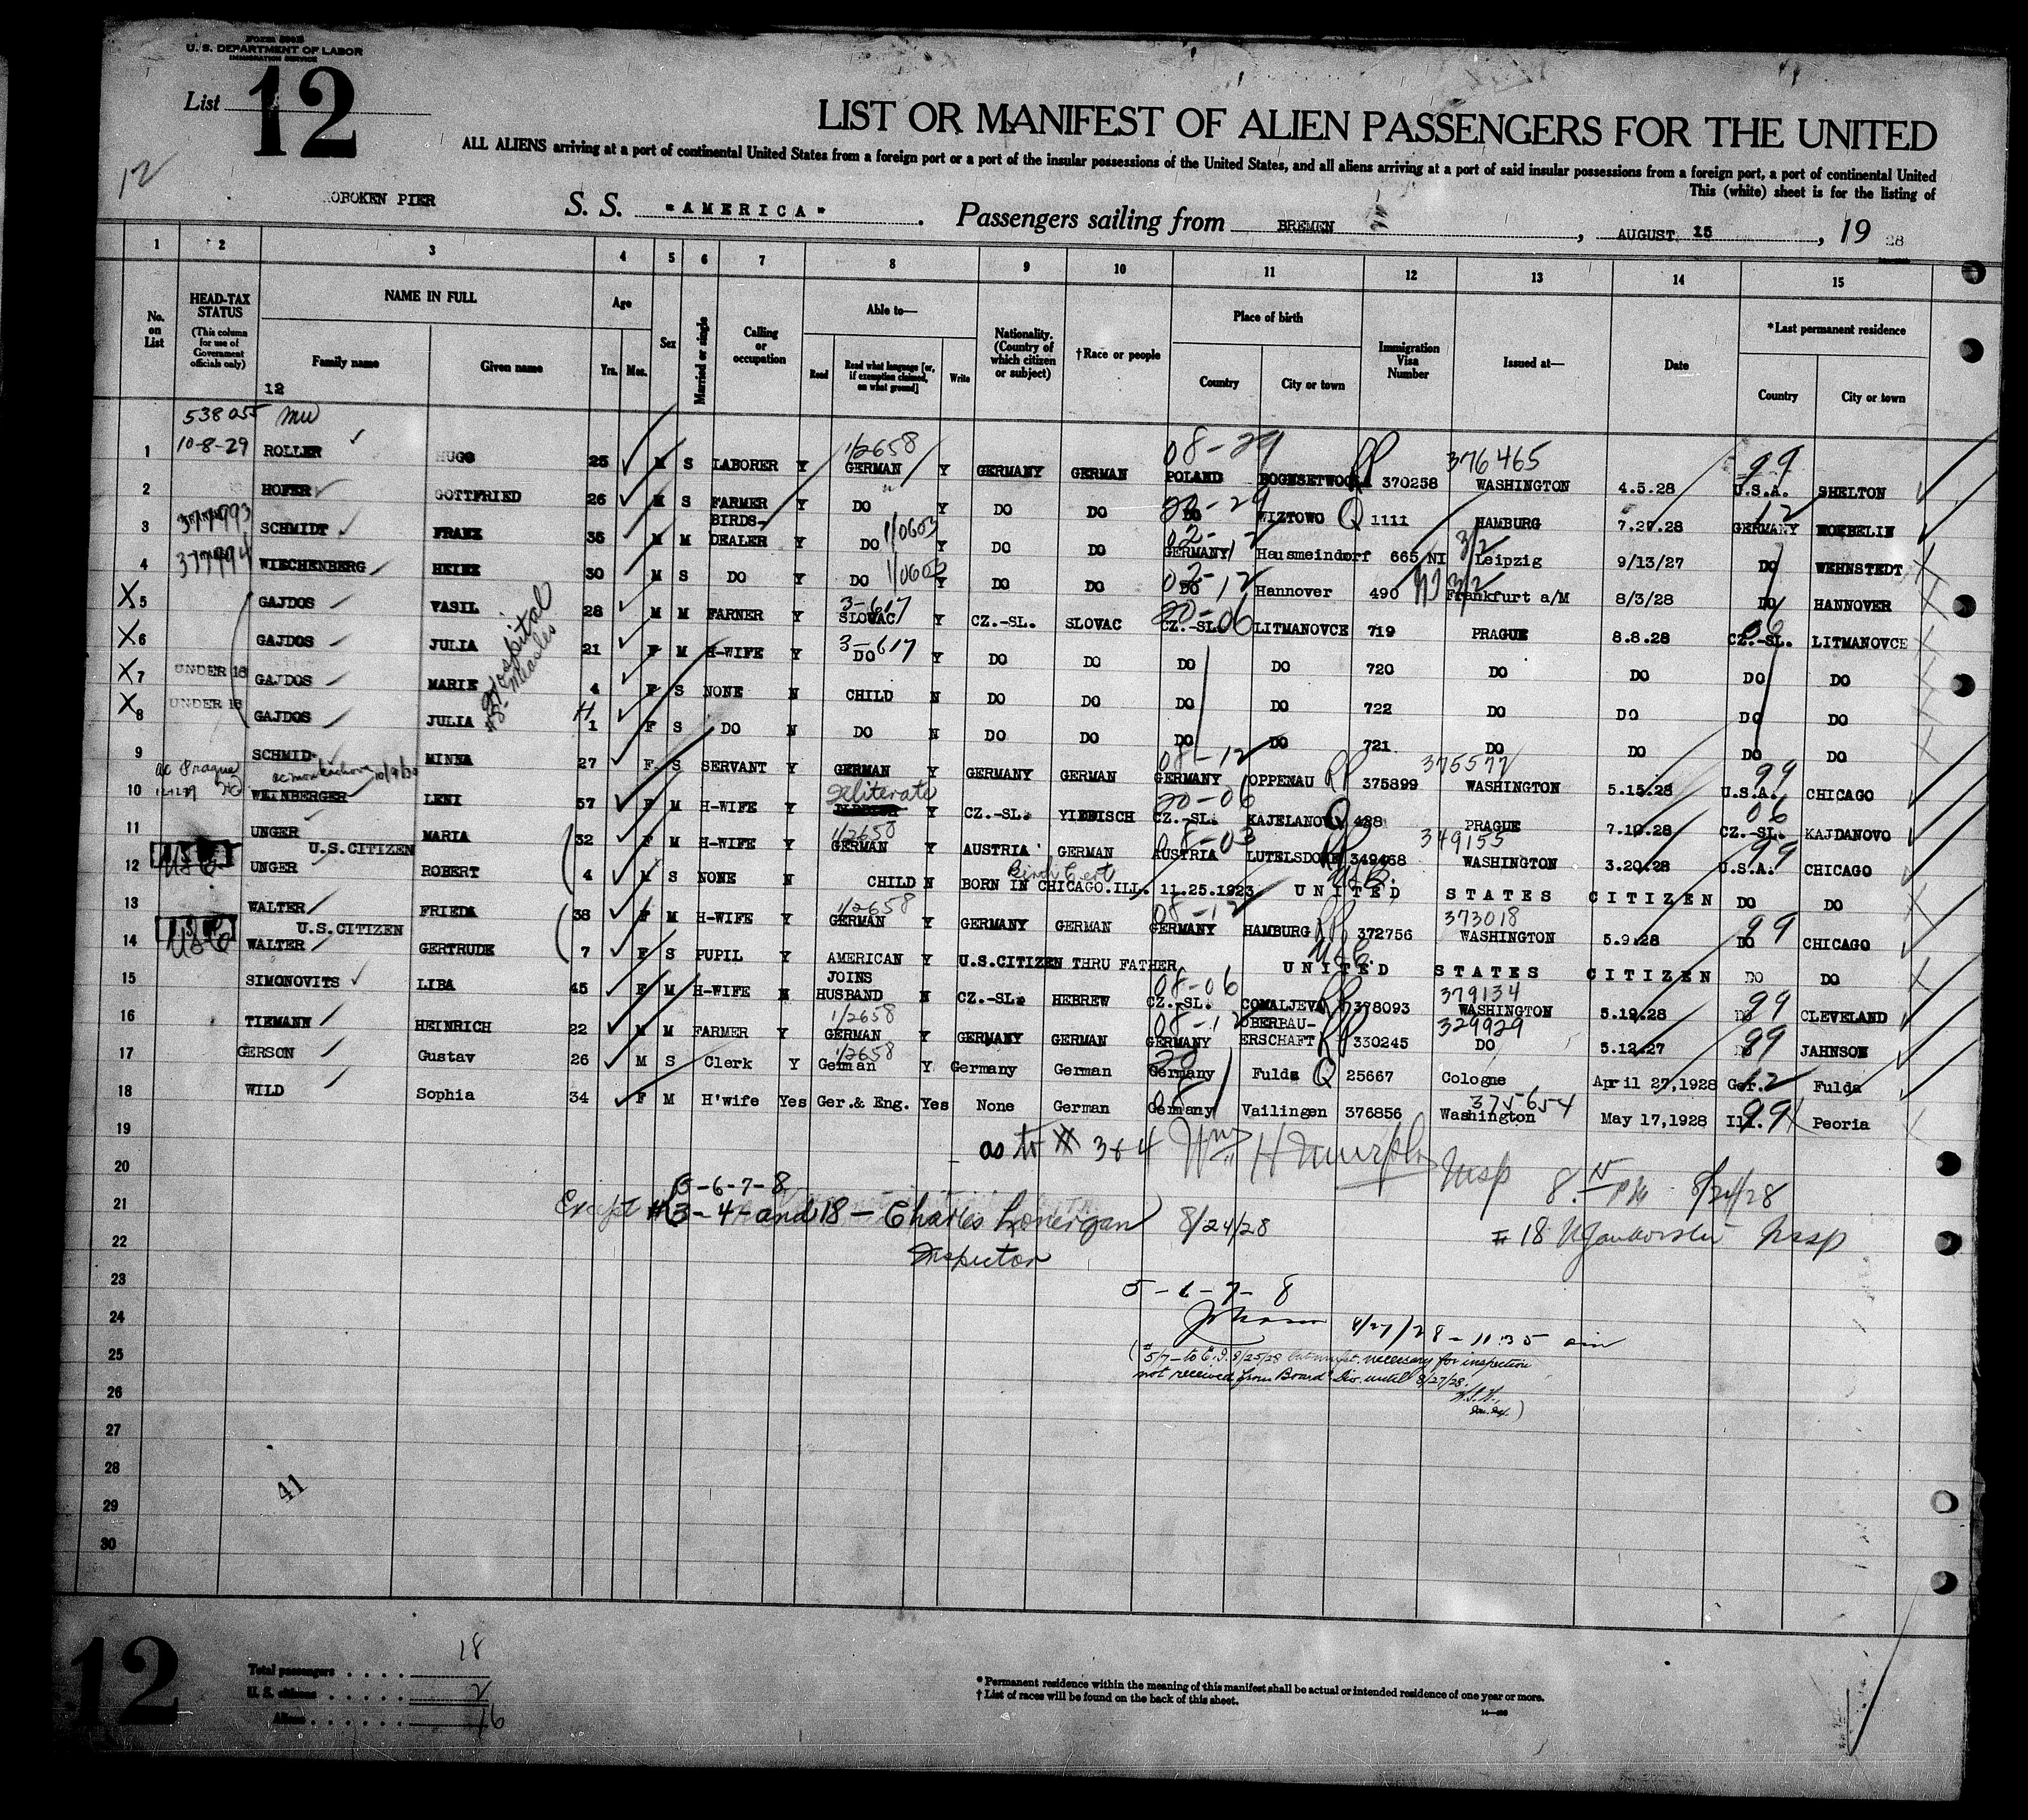 Form 500B
U. S. DEPARTMENT OF LABOR
IMMIGRATION SERVICE
List 12
12
LIST OR MANIFEST OF ALIEN PASSENGERS FOR THE UNITED
ALL ALIENS arriving at a port of continental United States from a foreign port or a port of the insular possessions of the United States, and all aliens arriving at a port of said insular possessions from a foreign port, a port of continental United
This (white) sheet is for the listing of
OBOKEN PIER S. S. "AMERICA". Passengers sailing from BREMEN, AUGUST 15, 19 28
1 2 3 4 5 6 7 8 9 10 11 12 13 14 15
No. on List
HEAD-TAX STATUS (This column for use of Government officials only)
NAME IN FULL Family name Given name
Age Yrs. Mos.
Sex
Married or single
Calling or occupation
Able to— Read Read what language [or, if exemption claimed, on what ground] Write
Nationality. (Country of which citizen or subject)
†Race or people
Place of birth Country City or town
Immigration Visa Number
Issued at—
Date
*Last permanent residence Country City or town
12
538055
10-8-29 12658 08-29 376465 99
1 ROLLER HUGO 25 M S LABORER Y GERMAN Y GERMANY GERMAN POLAND 370258 WASHINGTON 4.5.28 U.S.A. SHELTON
2 HOFER GOTTFRIED 26 M S FARMER Y DO Y DO DO DO WIZTOWO Q 1111 HAMBURG 7.27.28 GERMANY
377993 10603
3 SCHMIDT FRANZ 35 M M BIRDS-DEALER Y DO Y DO DO GERMANY Hausmeindorf 665 NI Leipzig 9/13/27 DO WEHNSTEDT
377994 10603 02-12
4 WIECHENBERG HEINZ 30 M S DO Y DO Y DO DO DO Hannover 490 Frankfurt a/M 8/3/28 DO HANNOVER
3-617 20-06 06
X 5 GAJDOS VASIL 28 M M FARNER Y SLOVAC Y CZ.-SL. SLOVAC CZ.-SL. LITMANOVCE 719 PRAGUE 8.8.28 CZ.-SL. LITMANOVCE
3-617
X 6 GAJDOS JULIA 21 F M H-WIFE Y DO Y DO DO DO DO 720 DO DO DO DO
X 7 UNDER 16 GAJDOS MARIE 4 F S NONE N CHILD N DO DO DO DO 722 DO DO DO DO
X 8 UNDER 16 GAJDOS JULIA H 1 F S DO N DO N DO DO DO DO 721 DO DO DO DO
Hospital
Measles
08-12 375577 99
9 SCHMID MINNA 27 F S SERVANT Y GERMAN Y GERMANY GERMAN GERMANY OPPENAU 375899 WASHINGTON 5.15.28 U.S.A. CHICAGO
ac Prague 10/9/30
illiterate 20-06 06
10 WEINBERGER LENI 57 F M H-WIFE Y Y CZ.-SL. YIDDISCH CZ.-SL. KAJELANOV 488 PRAGUE 7.19.28 CZ.-SL. KAJDANOVO
12658 08-03 349155 99
11 UNGER MARIA 32 F M H-WIFE Y GERMAN Y AUSTRIA GERMAN AUSTRIA LUTELSDORF 349468 WASHINGTON 3.20.28 U.S.A. CHICAGO
U.S. CITIZEN Birth Cert
12 USC UNGER ROBERT 4 M S NONE N CHILD N BORN IN CHICAGO.ILL. 11.25.1923 UNITED STATES CITIZEN DO DO
12658 08-12 373018 99
13 WALTER FRIEDA 38 F M H-WIFE Y GERMAN Y GERMANY GERMAN GERMANY HAMBURG 372756 WASHINGTON 5.9.28 DO CHICAGO
U.S. CITIZEN
14 USC WALTER GERTRUDE 7 F S PUPIL Y AMERICAN Y U.S.CITIZEN THRU FATHER UNITED STATES CITIZEN DO DO
08-06 379134 99
15 SIMONOVITS LIBA 45 F M H-WIFE N JOINS HUSBAND N CZ.-SL. HEBREW CZ.-SL. COMALJEVA 378093 WASHINGTON 5.19.28 DO CLEVELAND
12658 08-12 329929 99
16 TIEMANN HEINRICH 22 M M FARMER Y GERMAN Y GERMANY GERMAN GERMANY OBERBAU-ERSCHAFT 330245 DO 5.12.27 JAHNSON
12658 20 12
17 GERSON Gustav 26 M S Clerk Y German Y Germany German Germany Fulda Q 25667 Cologne April 27,1928 Ger. Fulda
08 375654 99
18 WILD Sophia 34 F M H'wife Yes Ger.& Eng. Yes None German Germany Vailingen 376856 Washington May 17,1928 Ill. Peoria
19 as to # 3 & 4 Wm H Murphy Insp 8/24/28
20
5-6-7-8
21 Except #3-4-and 18 - Charles Lonergan 8/24/28
Inspector
22 # 18 Insp
23 5-6-7-8
24 8/27/28 - 11 35 am
25 (#5/7-to E.I. 8/25/28 necessary for inspection
26 not received from Board Div. until 8/27/28.
27
28
29
30
41
12
Total passengers . . . . 18
U. S. citizens . . . . . 2
Aliens . . . . . . 16
* Permanent residence within the meaning of this manifest shall be actual or intended residence of one year or more.
† List of races will be found on the back of this sheet.